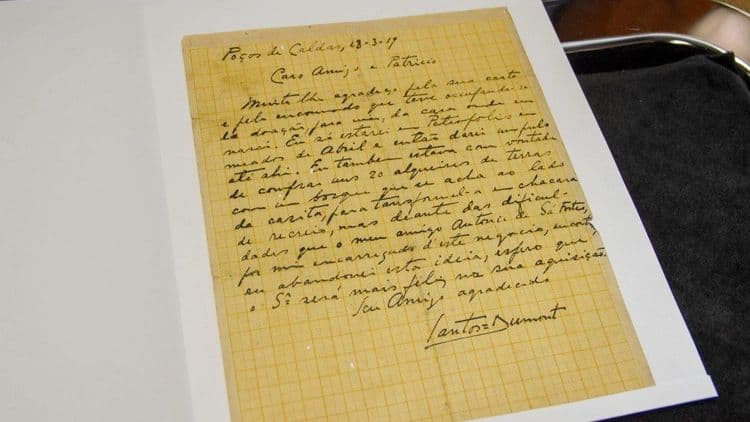 Poços de Caldas, 28-3-19
Caro Amigo e Patricio
Muito lhe agradeço pela sua carta
e pelo encommodo que teve occupando-se
da doação, para mim, da casa onde eu
nasci. Eu só estarei em Petropolis em
meados de Abril e então darei um pulo
até ahi. Eu tambem estava com vontade
de comprar uns 20 alqueires de terras
com um bosque que se acha ao lado
da casita, para transformal-a em chacara
de recreio, mas deante das dificul-
dades que o meu amigo Antonio de Sá Fortes,
por mim encarregado d'este negocio,
eu abandonei esta ideia, espero que
o Sr será mais feliz na sua aquisição.
Seu Amigo agradecido
Santos=Dumont